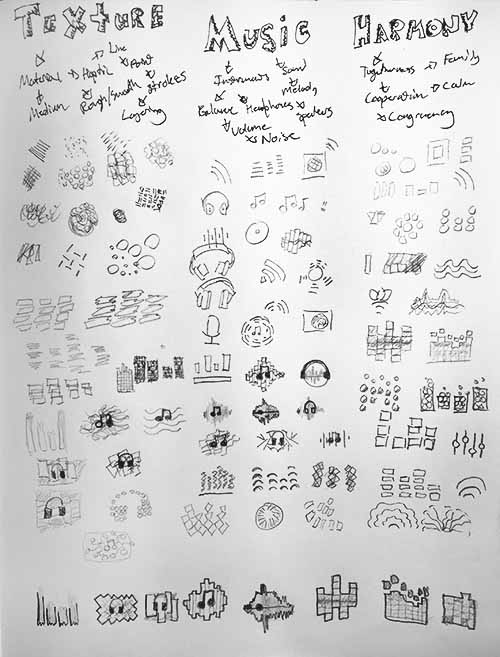 TEXTURE
Line
Material Haptic
Medium Rough/smooth strokes
Layering
MUSIC
Instruments Sound
Melody
Balance Headphones speakers
Volume
Noise
HARMONY
Togetherness Family
Cooperation Calm
Congruency